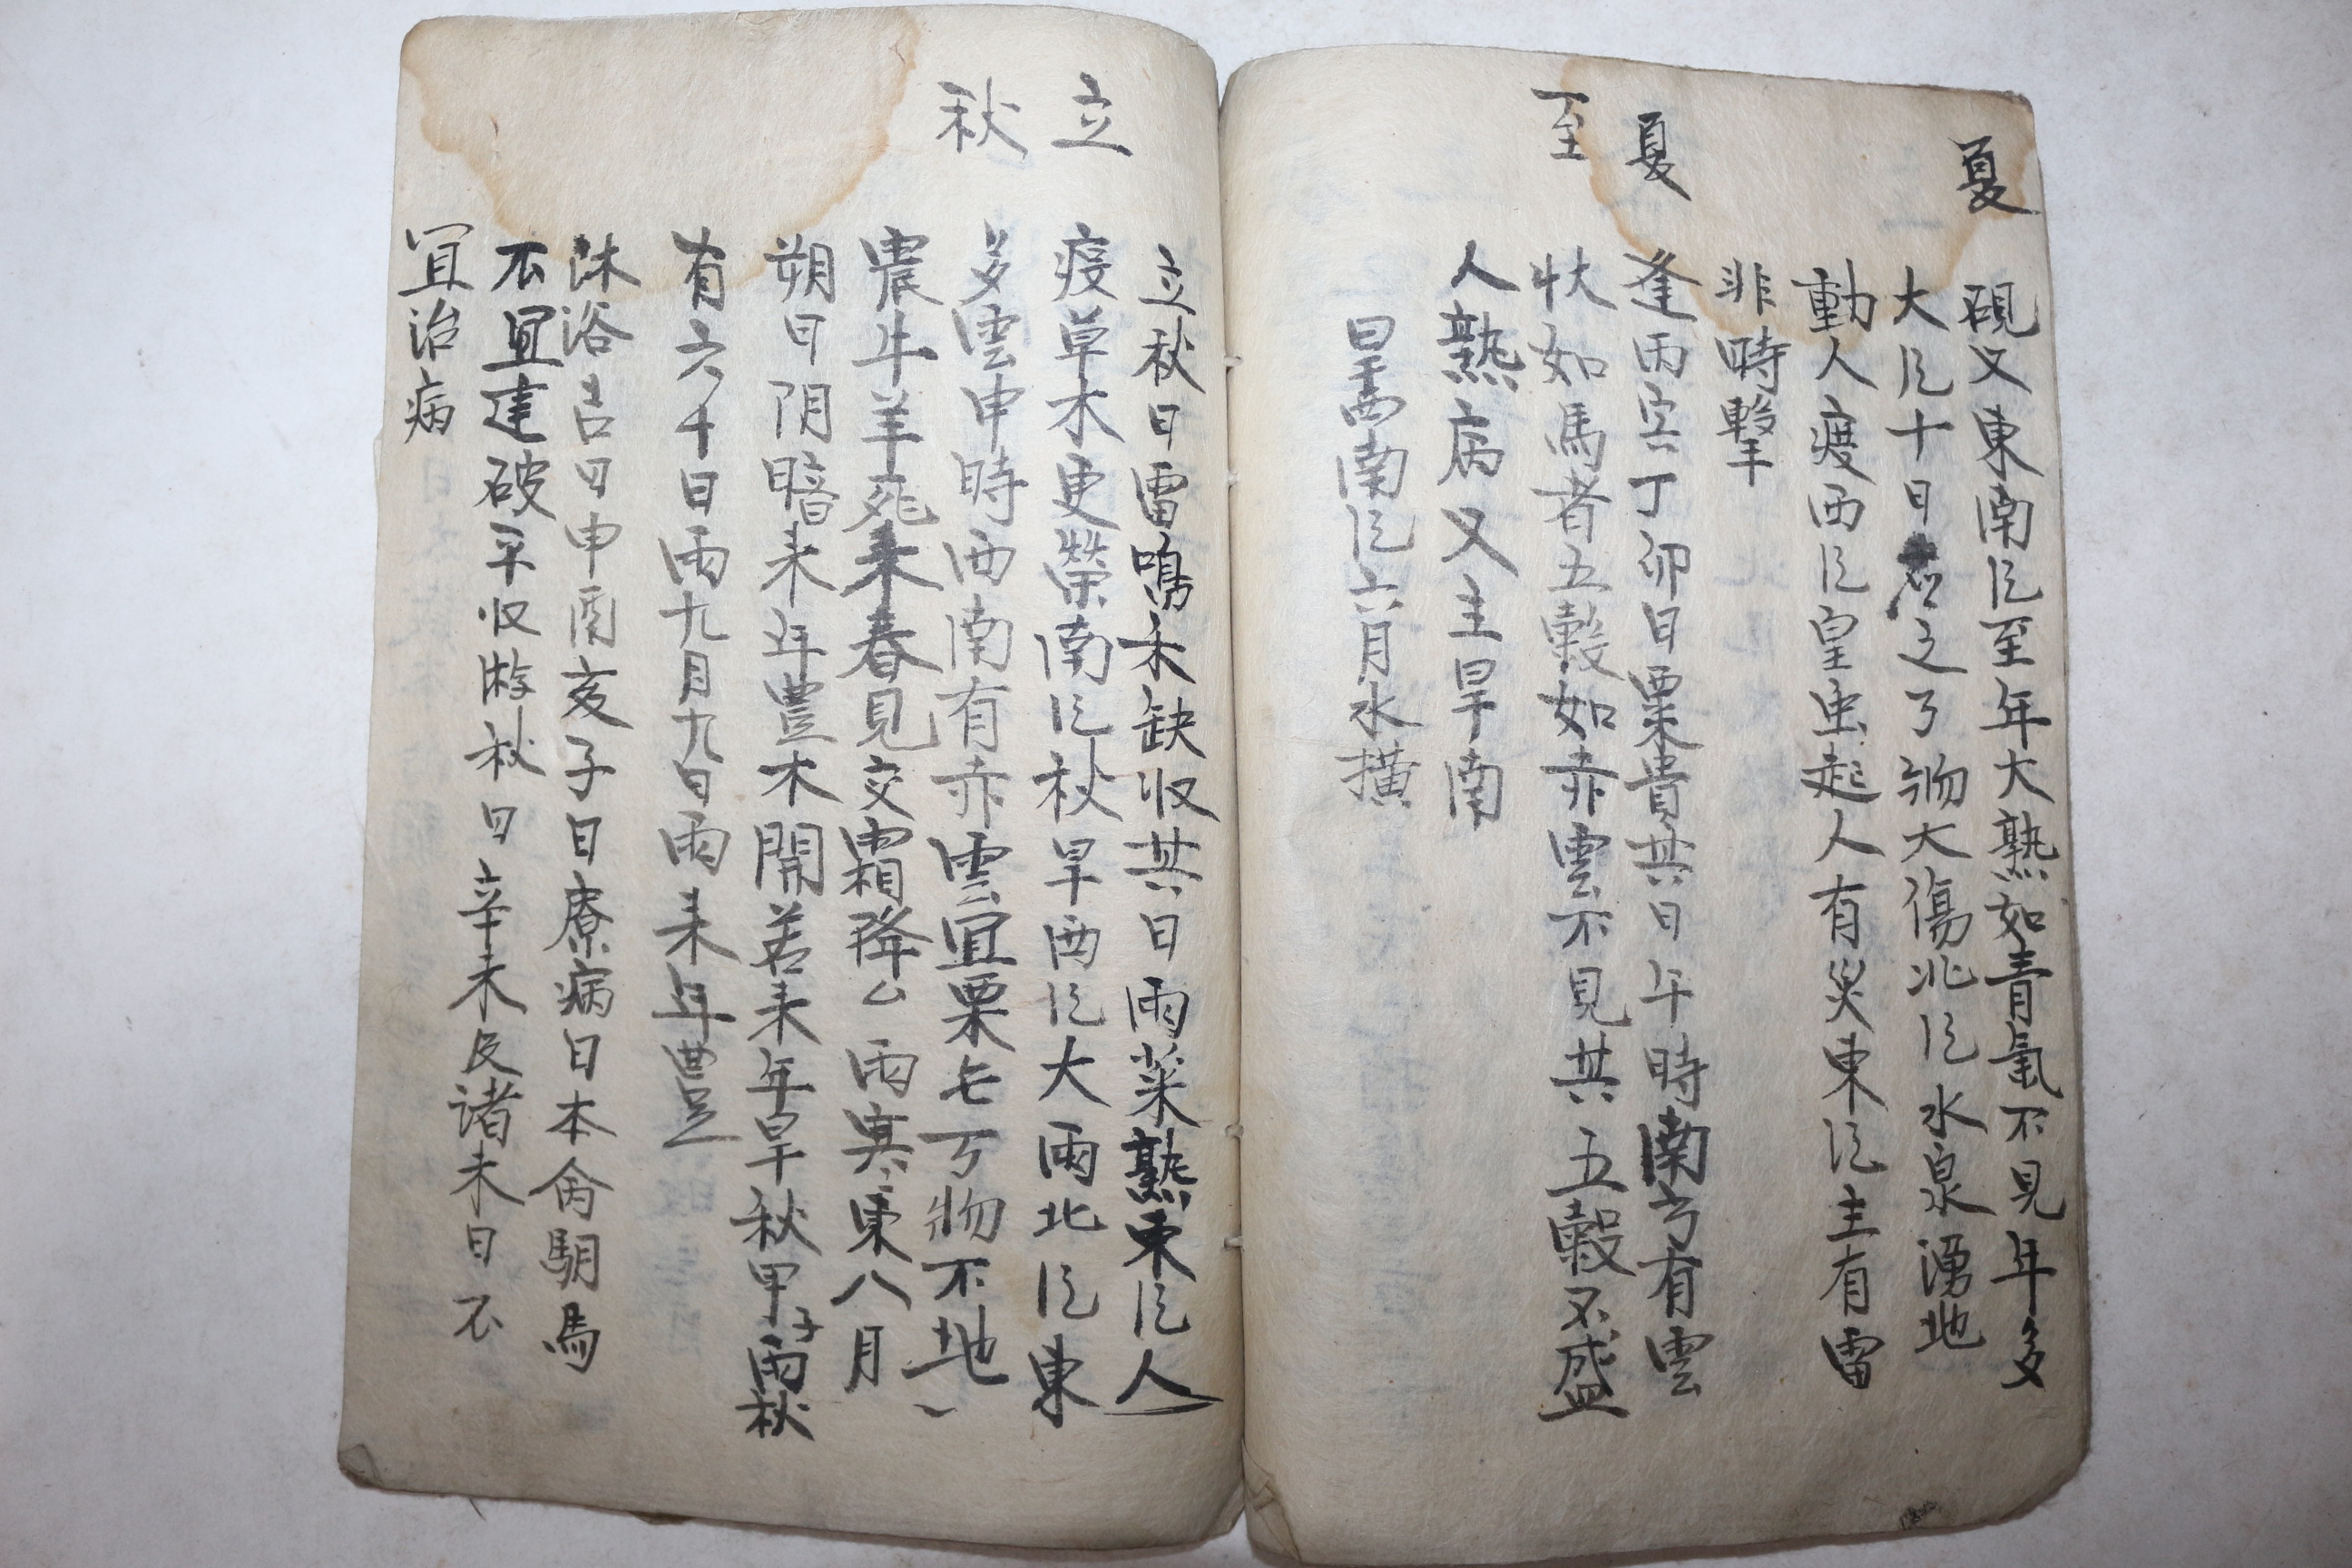 夏
硯又東南㠯至年大熟如青氣不見年多
大㠯十日之了物大傷北㠯水泉湧地
動人疫西㠯皇虫起人有災東㠯主有雷
非時擊
夏
至
逢丙寅丁卯日粟貴其日午時南方有雲
狀如馬者五穀如赤雲不見其五穀不盛
人熱病又主旱南
旱西南㠯六月水橫
立
秋
立秋日雷鳴禾缺收其日雨菜熟東㠯人
疫草木更榮南㠯秋旱西㠯大雨北㠯東
多雲申時西南有赤雲宜粟七丁物不地
農牛羊死來春見交霜降雨寒東八月
朔日阴暗来年豊木開若来年旱秋甲子雨秋
有六十日雨九月九日雨来年豊
沐浴吉日申酉亥子日療病日本禽馹馬
不宜建破平收游秋日辛未及諸未日不
宜治病